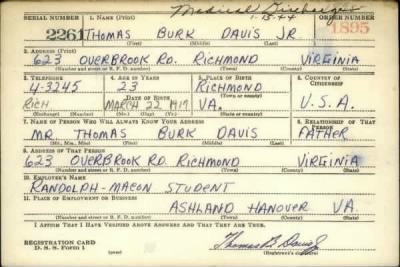 Medical Discharge
1-15-44
SERIAL NUMBER 1. NAME (Print) ORDER NUMBER
2261 THOMAS BURK DAVIS JR 1895
(First) (Middle) (Last)
2. ADDRESS (Print)
623 OVERBROOK RD. RICHMOND VIRGINIA
(Number and street or R. F. D. number) (Town) (County) (State)
3. TELEPHONE 4. AGE IN YEARS 5. PLACE OF BIRTH 6. COUNTRY OF CITIZENSHIP
4-3245 23 RICHMOND
(Town or county)
DATE OF BIRTH
RICH MARCH 22 1919 VA. U.S.A.
(Exchange) (Number) (Mo.) (Day) (Yr.) (State or country)
7. NAME OF PERSON WHO WILL ALWAYS KNOW YOUR ADDRESS 8. RELATIONSHIP OF THAT PERSON
MR. THOMAS BURK DAVIS FATHER
(Mr., Mrs., Miss) (First) (Middle) (Last)
9. ADDRESS OF THAT PERSON
623 OVERBROOK RD. RICHMOND VIRGINIA
(Number and street or R. F. D. number) (Town) (County) (State)
10. EMPLOYER'S NAME
RANDOLPH-MACON STUDENT
11. PLACE OF EMPLOYMENT OR BUSINESS
ASHLAND HANOVER VA.
(Number and street or R. F. D. number) (Town) (County) (State)
I AFFIRM THAT I HAVE VERIFIED ABOVE ANSWERS AND THAT THEY ARE TRUE.
REGISTRATION CARD
D. S. S. Form 1 Thomas B. Davis Jr
(Registrant's signature)